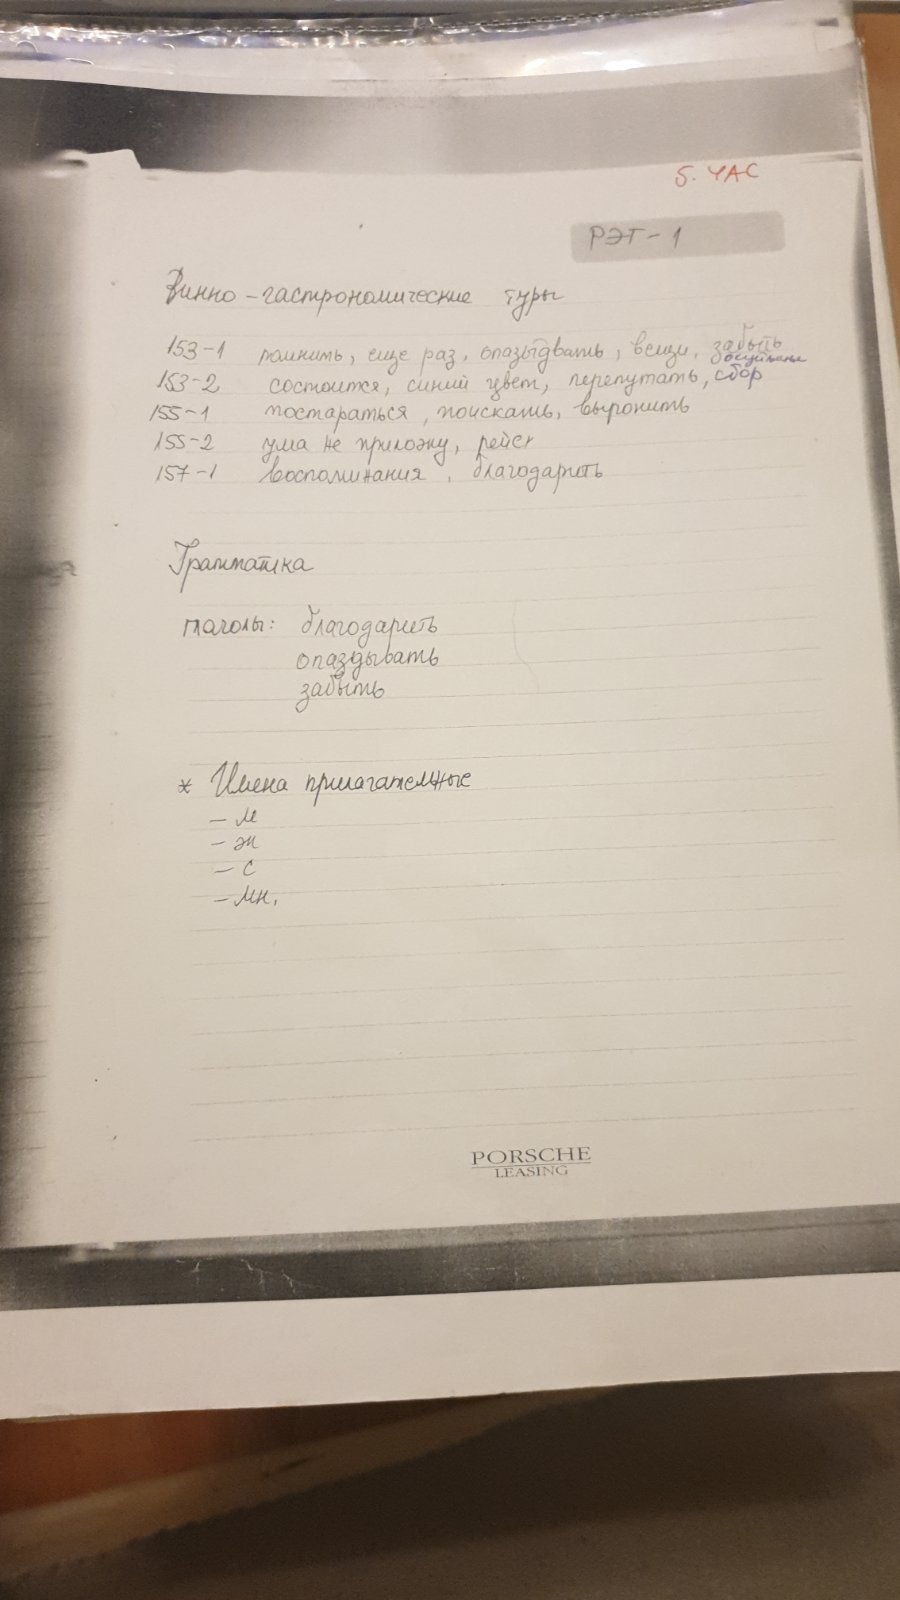 5. ЧАС
РЭТ-1
Винно-гастрономические туры
153-1 помнить, еще раз, опаздывать, вещи, забыть
153-2 состоится, синий цвет, перепутать, сбор
155-1 постараться, поискать, выронить
155-2 ума не приложу, рейс
157-1 воспоминания, благодарить
Грамматика
глаголы: благодарить
опаздывать
забыть
* Имена прилагательные
- м
- ж
- с
- мн.
PORSCHE
LEASING